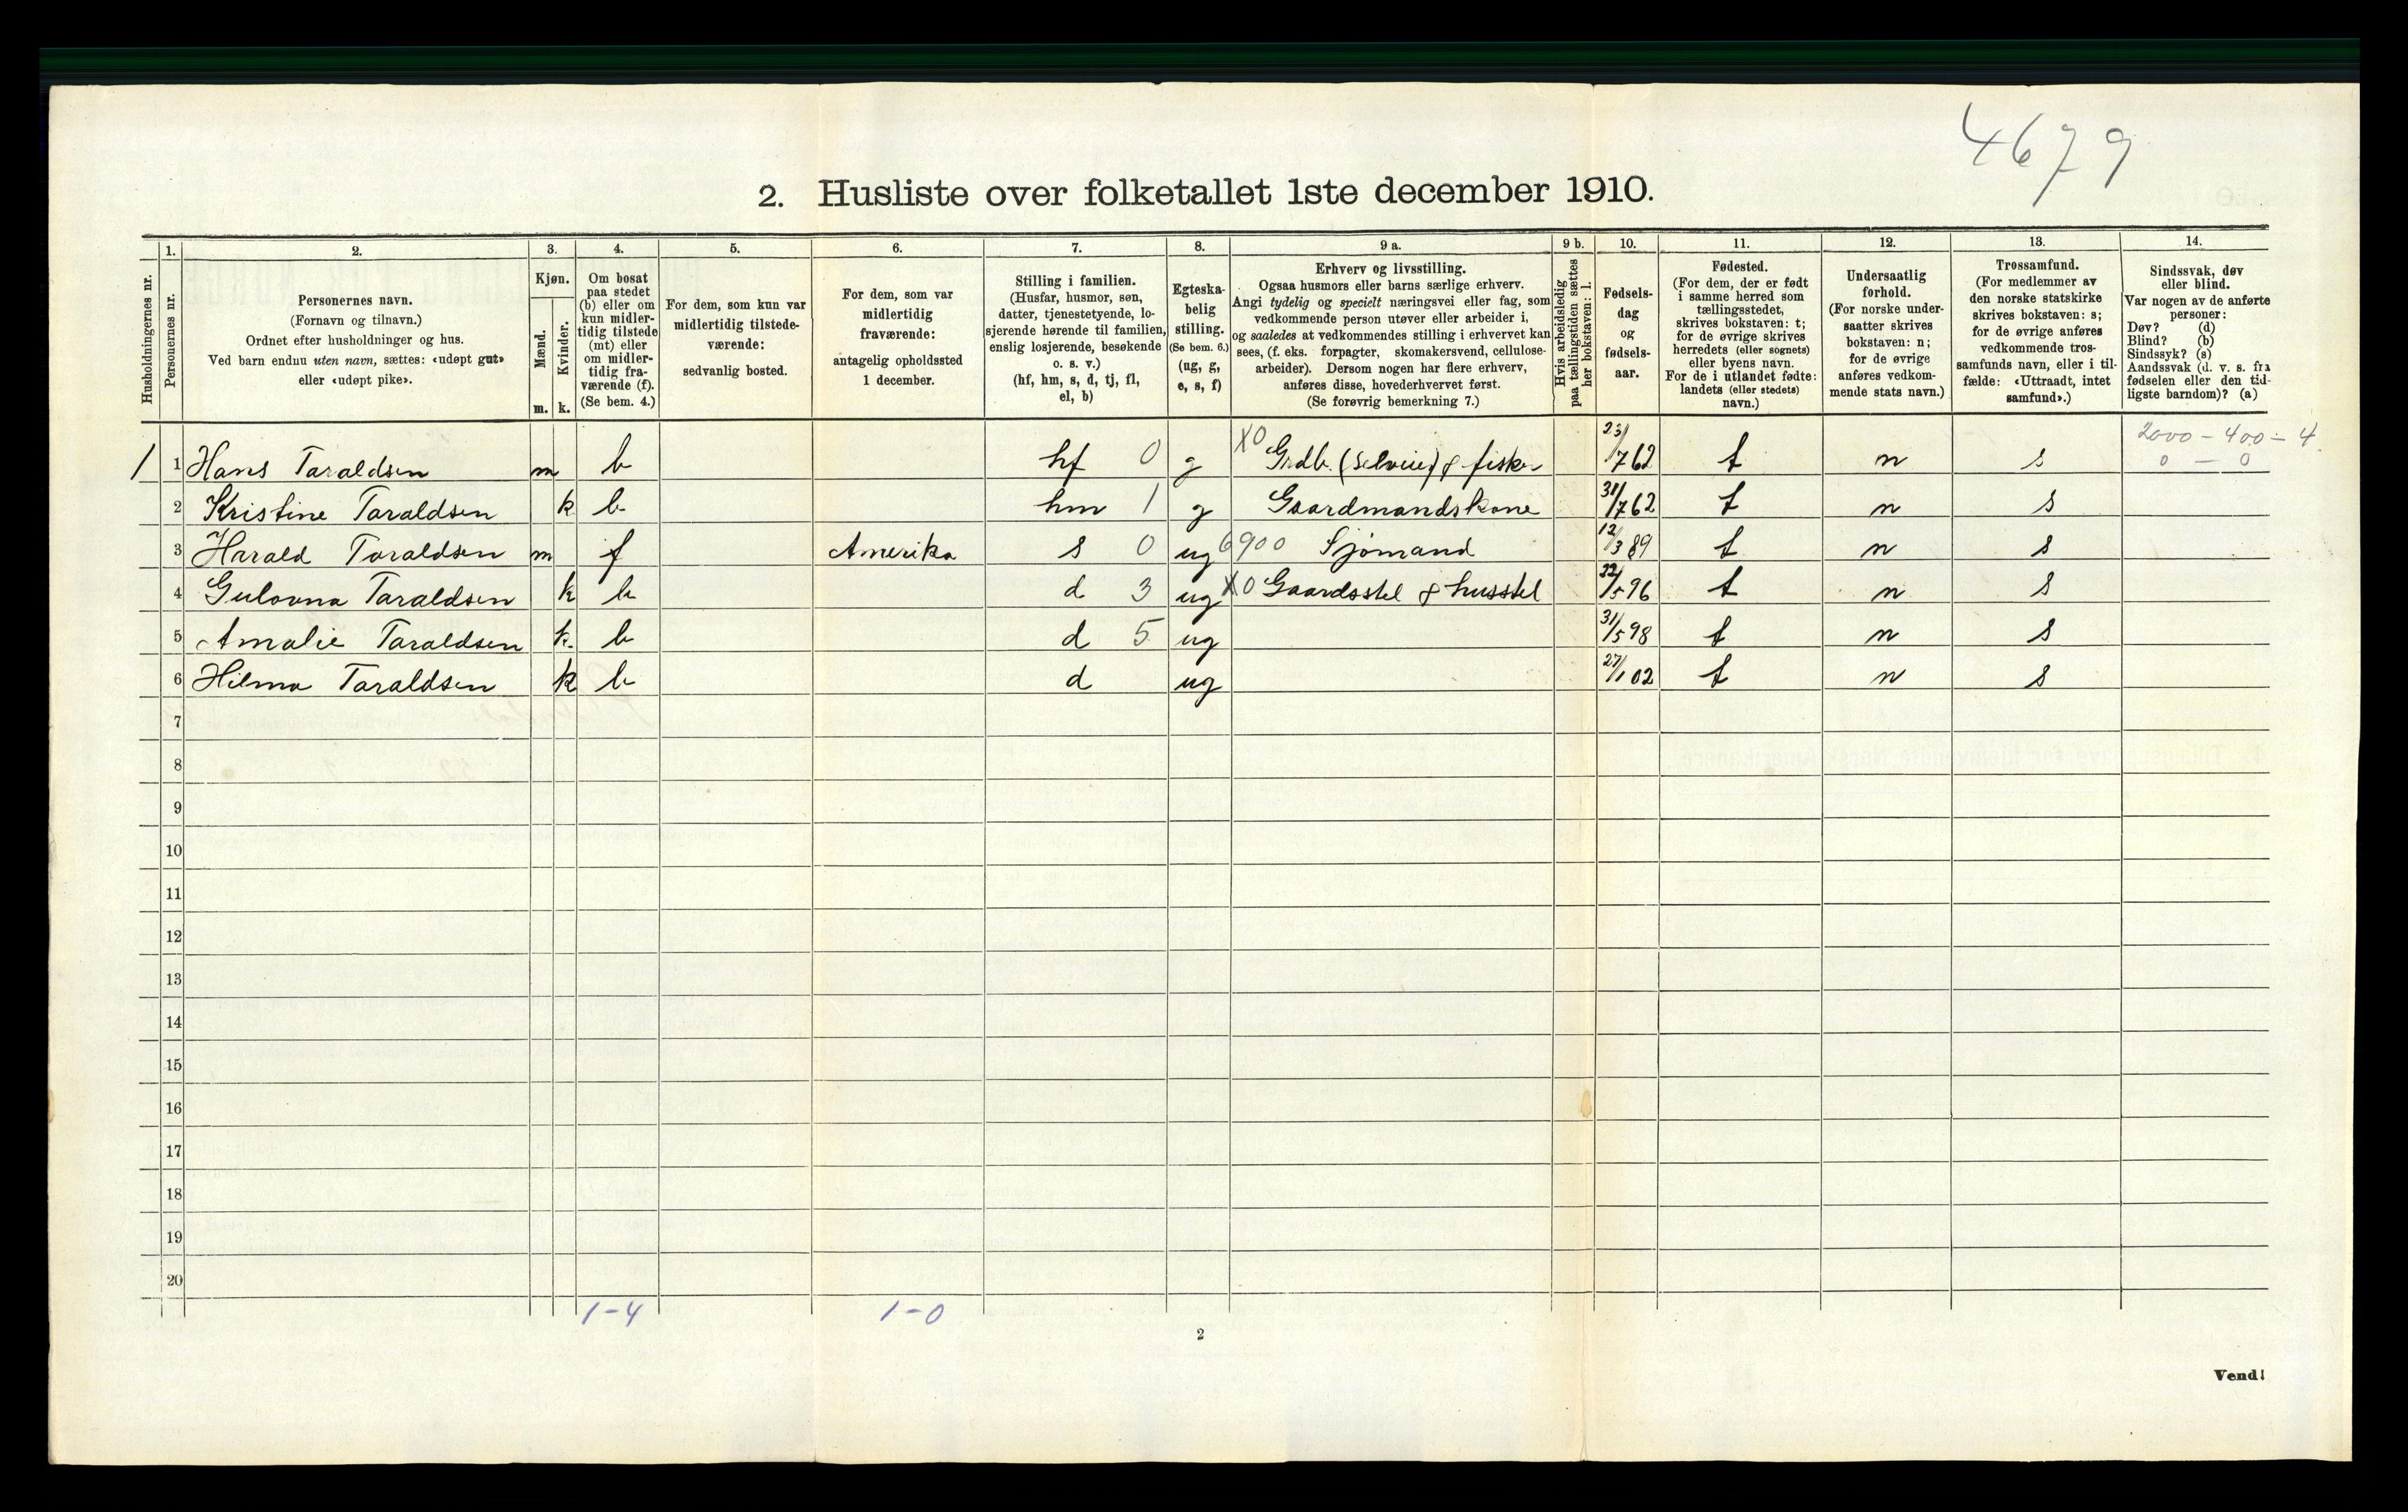 4679
2. Husliste over folketallet 1ste december 1910.
Husholdningernes nr.
1.
Personernes nr.
2.
Personernes navn.
(Fornavn og tilnavn.)
Ordnet efter husholdninger og hus.
Ved barn endnu uten navn, sættes: «udøpt gut»
eller «udøpt pike».
3.
Kjøn.
Mænd.
m.
Kvinder.
k.
4.
Om bosat
paa stedet
(b) eller om
kun midler-
tidig tilstede
(mt) eller
om midler-
tidig fra-
værende (f).
(Se bem. 4.)
5.
For dem, som kun var
midlertidig tilstede-
værende:
sedvanlig bosted.
6.
For dem, som var
midlertidig
fraværende:
antagelig opholdssted
1 december.
7.
Stilling i familien.
(Husfar, husmor, søn,
datter, tjenestetyende, lo-
sjerende hørende til familien,
enslig losjerende, besøkende
o. s. v.)
(hf, hm, s, d, tj, fl,
el, b)
8.
Egteska-
belig
stilling.
(Se bem. 6.)
(ug, g,
e, s, f)
9 a.
Erhverv og livsstilling.
Ogsaa husmors eller barns særlige erhverv.
Angi tydelig og specielt næringsvei eller fag, som
vedkommende person utøver eller arbeider i,
og saaledes at vedkommendes stilling i erhvervet kan
sees, (f. eks. forpagter, skomakersvend, cellulose-
arbeider). Dersom nogen har flere erhverv,
anføres disse, hovederhvervet først.
(Se forøvrig bemerkning 7.)
9 b.
Hvis arbeidsledig
paa tællingstiden sættes
her bokstaven: l.
10.
Fødsels-
dag
og
fødsels-
aar.
11.
Fødested.
(For dem, der er født
i samme herred som
tællingsstedet,
skrives bokstaven: t;
for de øvrige skrives
herredets (eller sognets)
eller byens navn.
For de i utlandet fødte:
landets (eller stedets)
navn.)
12.
Undersaatlig
forhold.
(For norske under-
saatter skrives
bokstaven: n;
for de øvrige
anføres vedkom-
mende stats navn.)
13.
Trossamfund.
(For medlemmer av
den norske statskirke
skrives bokstaven: s;
for de øvrige anføres
vedkommende tros-
samfunds navn, eller i til-
fælde: «Uttraadt, intet
samfund».)
14.
Sindssvak, døv
eller blind.
Var nogen av de anførte
personer:
Døv? (d)
Blind? (b)
Sindssyk? (s)
Aandssvak (d. v. s. fra
fødselen eller den tid-
ligste barndom)? (a)
2000 - 400 - 4
0 - 0
1 1 Hans Taraldsen m b hf 0 g X0 Grdb. (Selveier) & fisker 23/7 62 t n s
2 Kristine Taraldsen k b hm 1 g Gaardmandskone 31/7 62 t n s
3 Harald Taraldsen m f Amerika s 0 ug 6900 Sjømand 12/3 89 t n s
4 Gulovna Taraldsen k b d 3 ug X0 Gaardsstel & husstel 22/5 96 t n s
5 Amalie Taraldsen k. b d 5 ug 31/5 98 t n s
6 Hilma Taraldsen k b d ug 27/1 02 t n s
7
8
9
10
11
12
13
14
15
16
17
18
19
20
1-4 1-0
2
Vend!